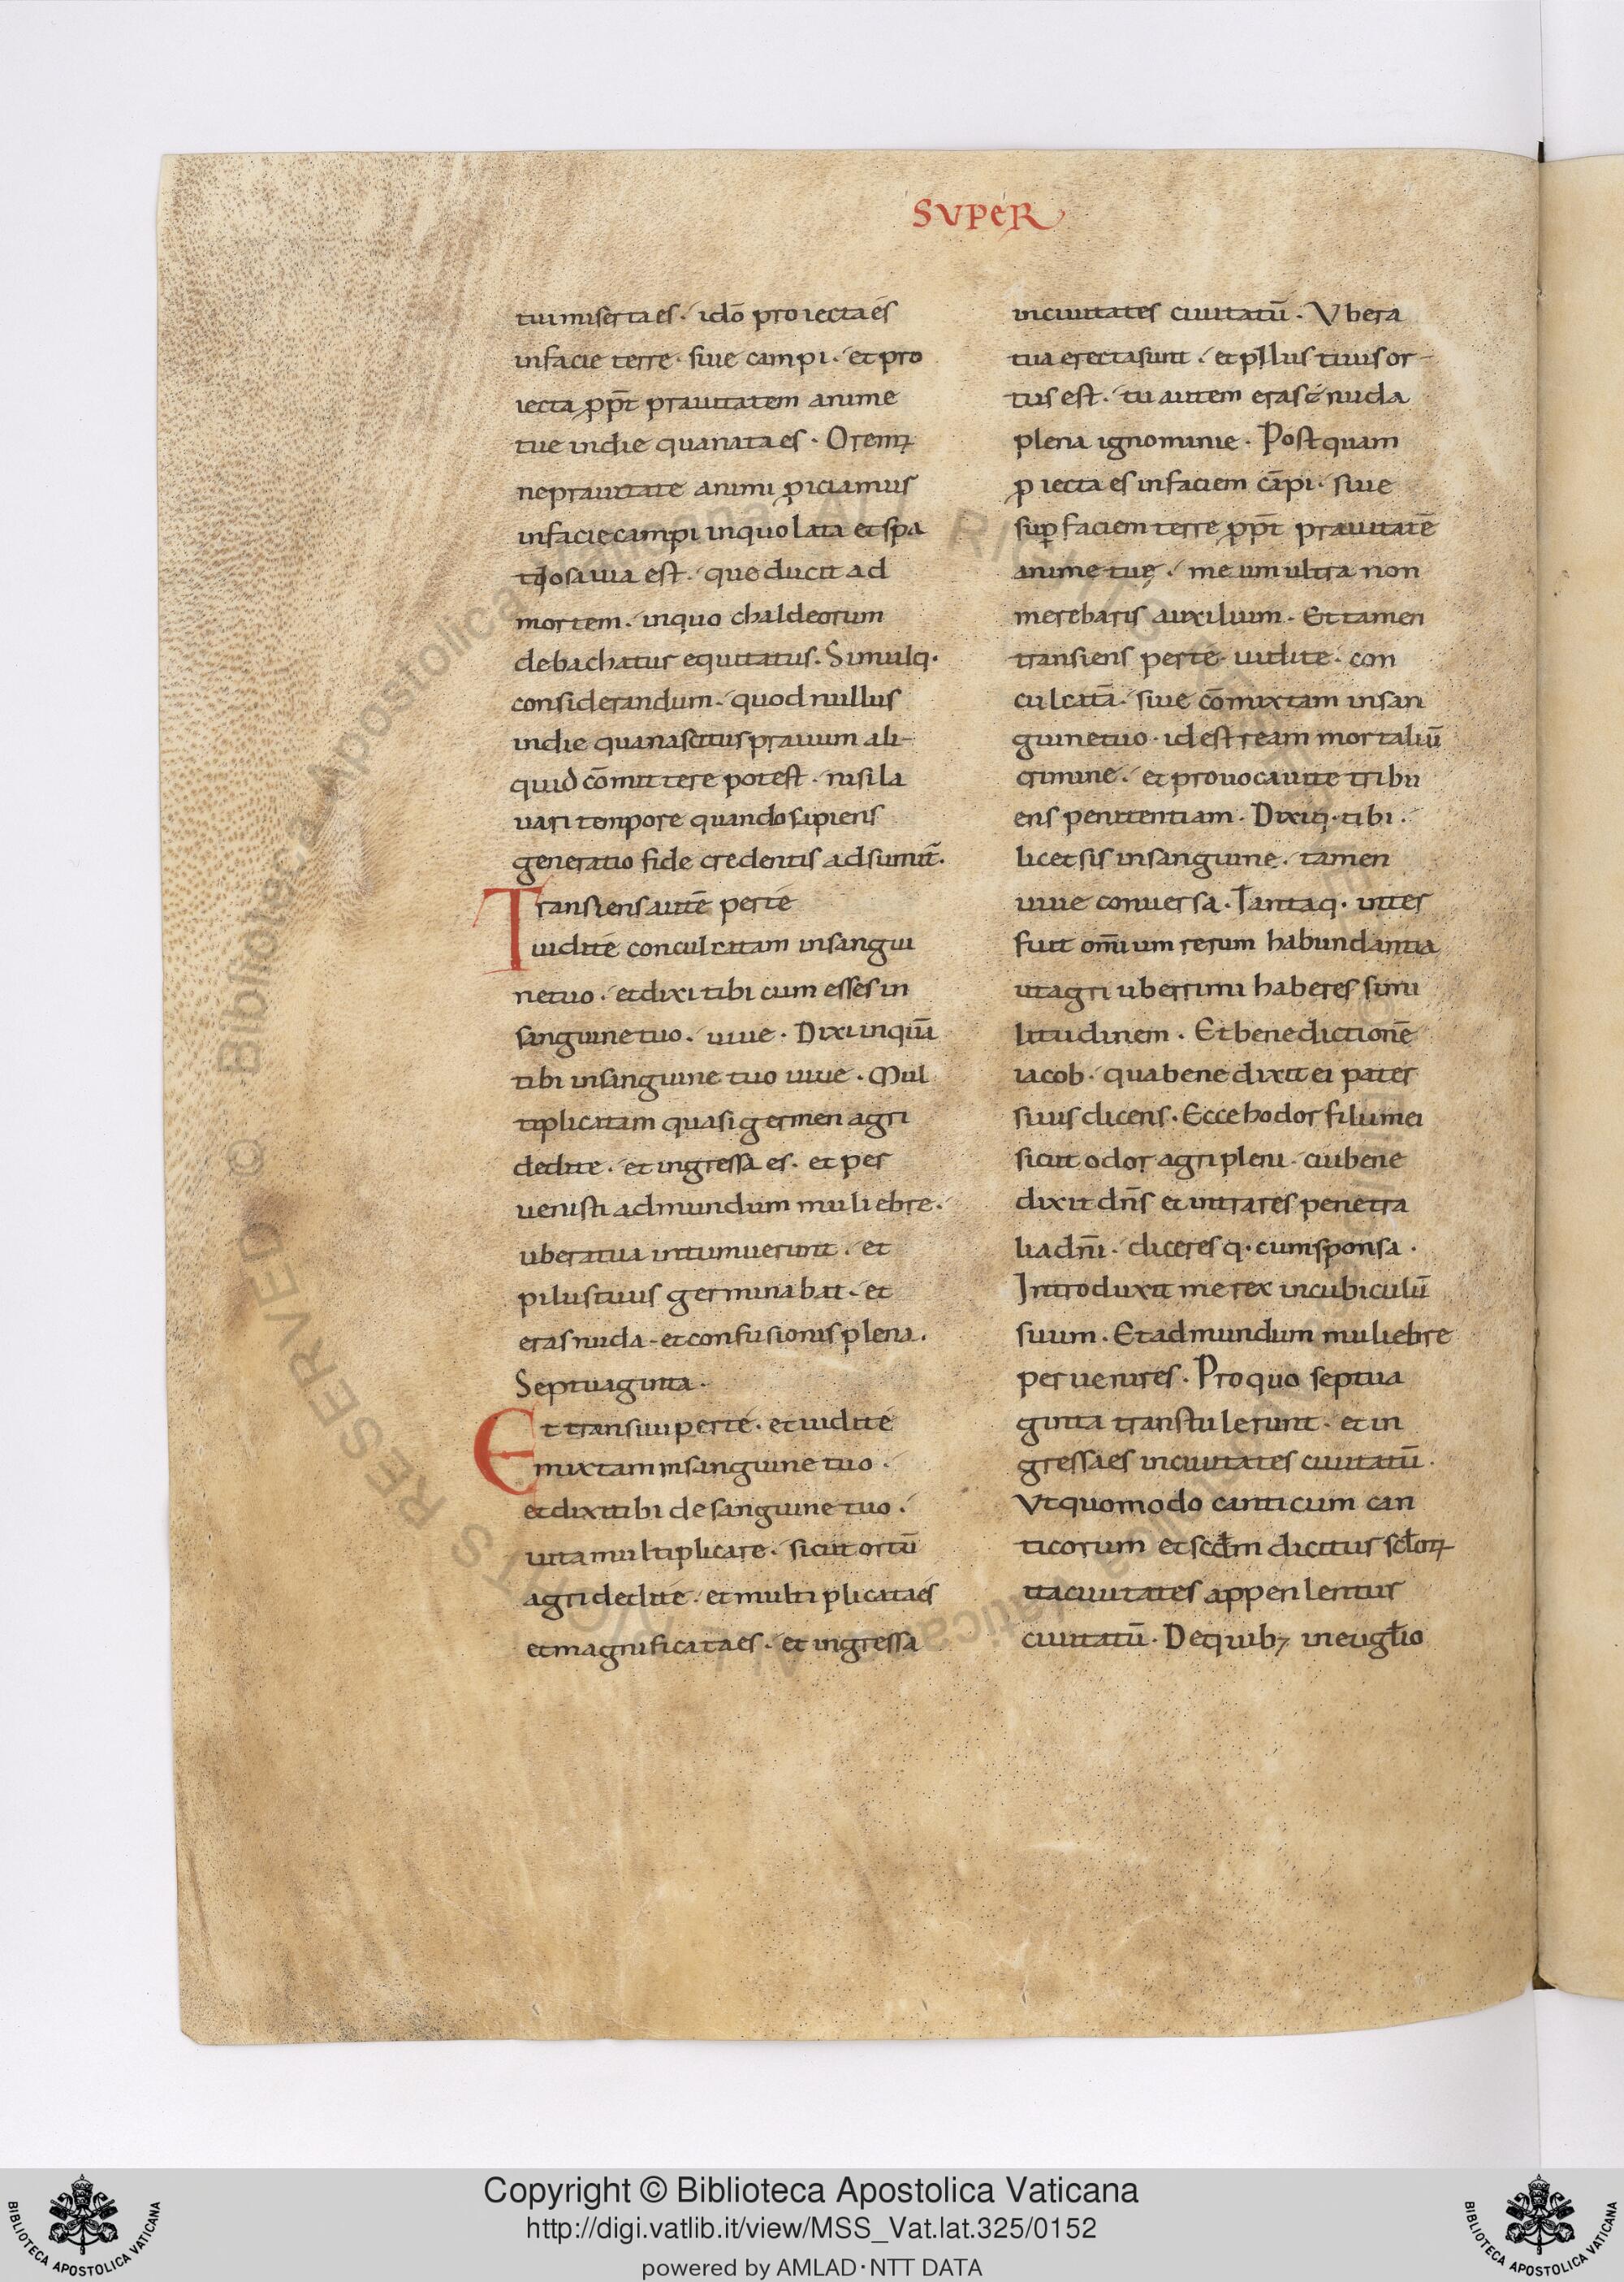 SVPER
tui miserta es. idō proiecta es
infacie terre. siue campi. et pro
iecta ꝓp̄t prauitatem anime
tue indie quanata es. Oremꝰ
neprauitate animi ꝓiciamus
infacie campi inquo lata et spa
tiosa uia est. que ducit ad
mortem. inquo chaldeorum
debachatur equitatus. Simulq.
considerandum. quod nullus
indie quanascitur prauum ali-
quid cōmittere potest. nisi la
uari tempore quando sapiens
generatio fide credentis adsumit̄.
Transiens autē perte
uidite conculcatam insangui
netuo. etdixi tibi cum esses in
sanguine tuo. uiue. Dixi inquā
tibi insanguine tuo uiue. Mul
tiplicatam quasi germen agri
dedite. et ingressa es. et per
uenisti admundum muliebre.
ubera tua intumuerunt. et
pilus tuus germinabat. et
eras nuda. et confusionis plena.
Septuaginta.
Et transiui perte. et uidite
mixtam insanguine tuo.
etdixi tibi de sanguine tuo.
uita multiplicare. sicut ortū
agri dedite. et multiplicata es
et magnificata es. et ingressa
inciuitates ciuitatū. Vbera
tua erecta sunt. et pillus tuus or-
tus est. tu autem eras & nuda
plena ignominie. Postquam
ꝓiecta es infaciem cāpi. siue
sup̱ faciem terre ꝓp̄t prauitatē
anime tuę. meum ultra non
merebaris auxilium. Et tamen
transiens perte. uidite. con
culcatā. siue cōmixtam insan
guinetuo. idest ream mortaliū
crimine. et prouocauite tribu
ens penitentiam. Dixiq. tibi.
licet sis insanguine. tamen
uiue conuersa. Tantaq. inter
fuit om̄ium rerum habundantia
utagri uberrimi haberes simi
litudinem. Et benedictionē
iacob. qua benedixit ei pater
suus dicens. Ecce hodor filii mei
sicut odor agri pleni. cui bene
dixit dn̄s et intrares penetra
lia dn̄i. diceresq. cum sponsa.
Introduxit me rex incubiculū
suum. Et admundum muliebre
peruenires. Pro quo septua
ginta transtulerunt. et in
gressa es inciuitates ciuitatū.
Vt quomodo canticum can
ticorum et sc̄dm dicitur sc̄loꝝ
ita ciuitates appenlentur
ciuitatū. De quibꝫ in eugł̄io